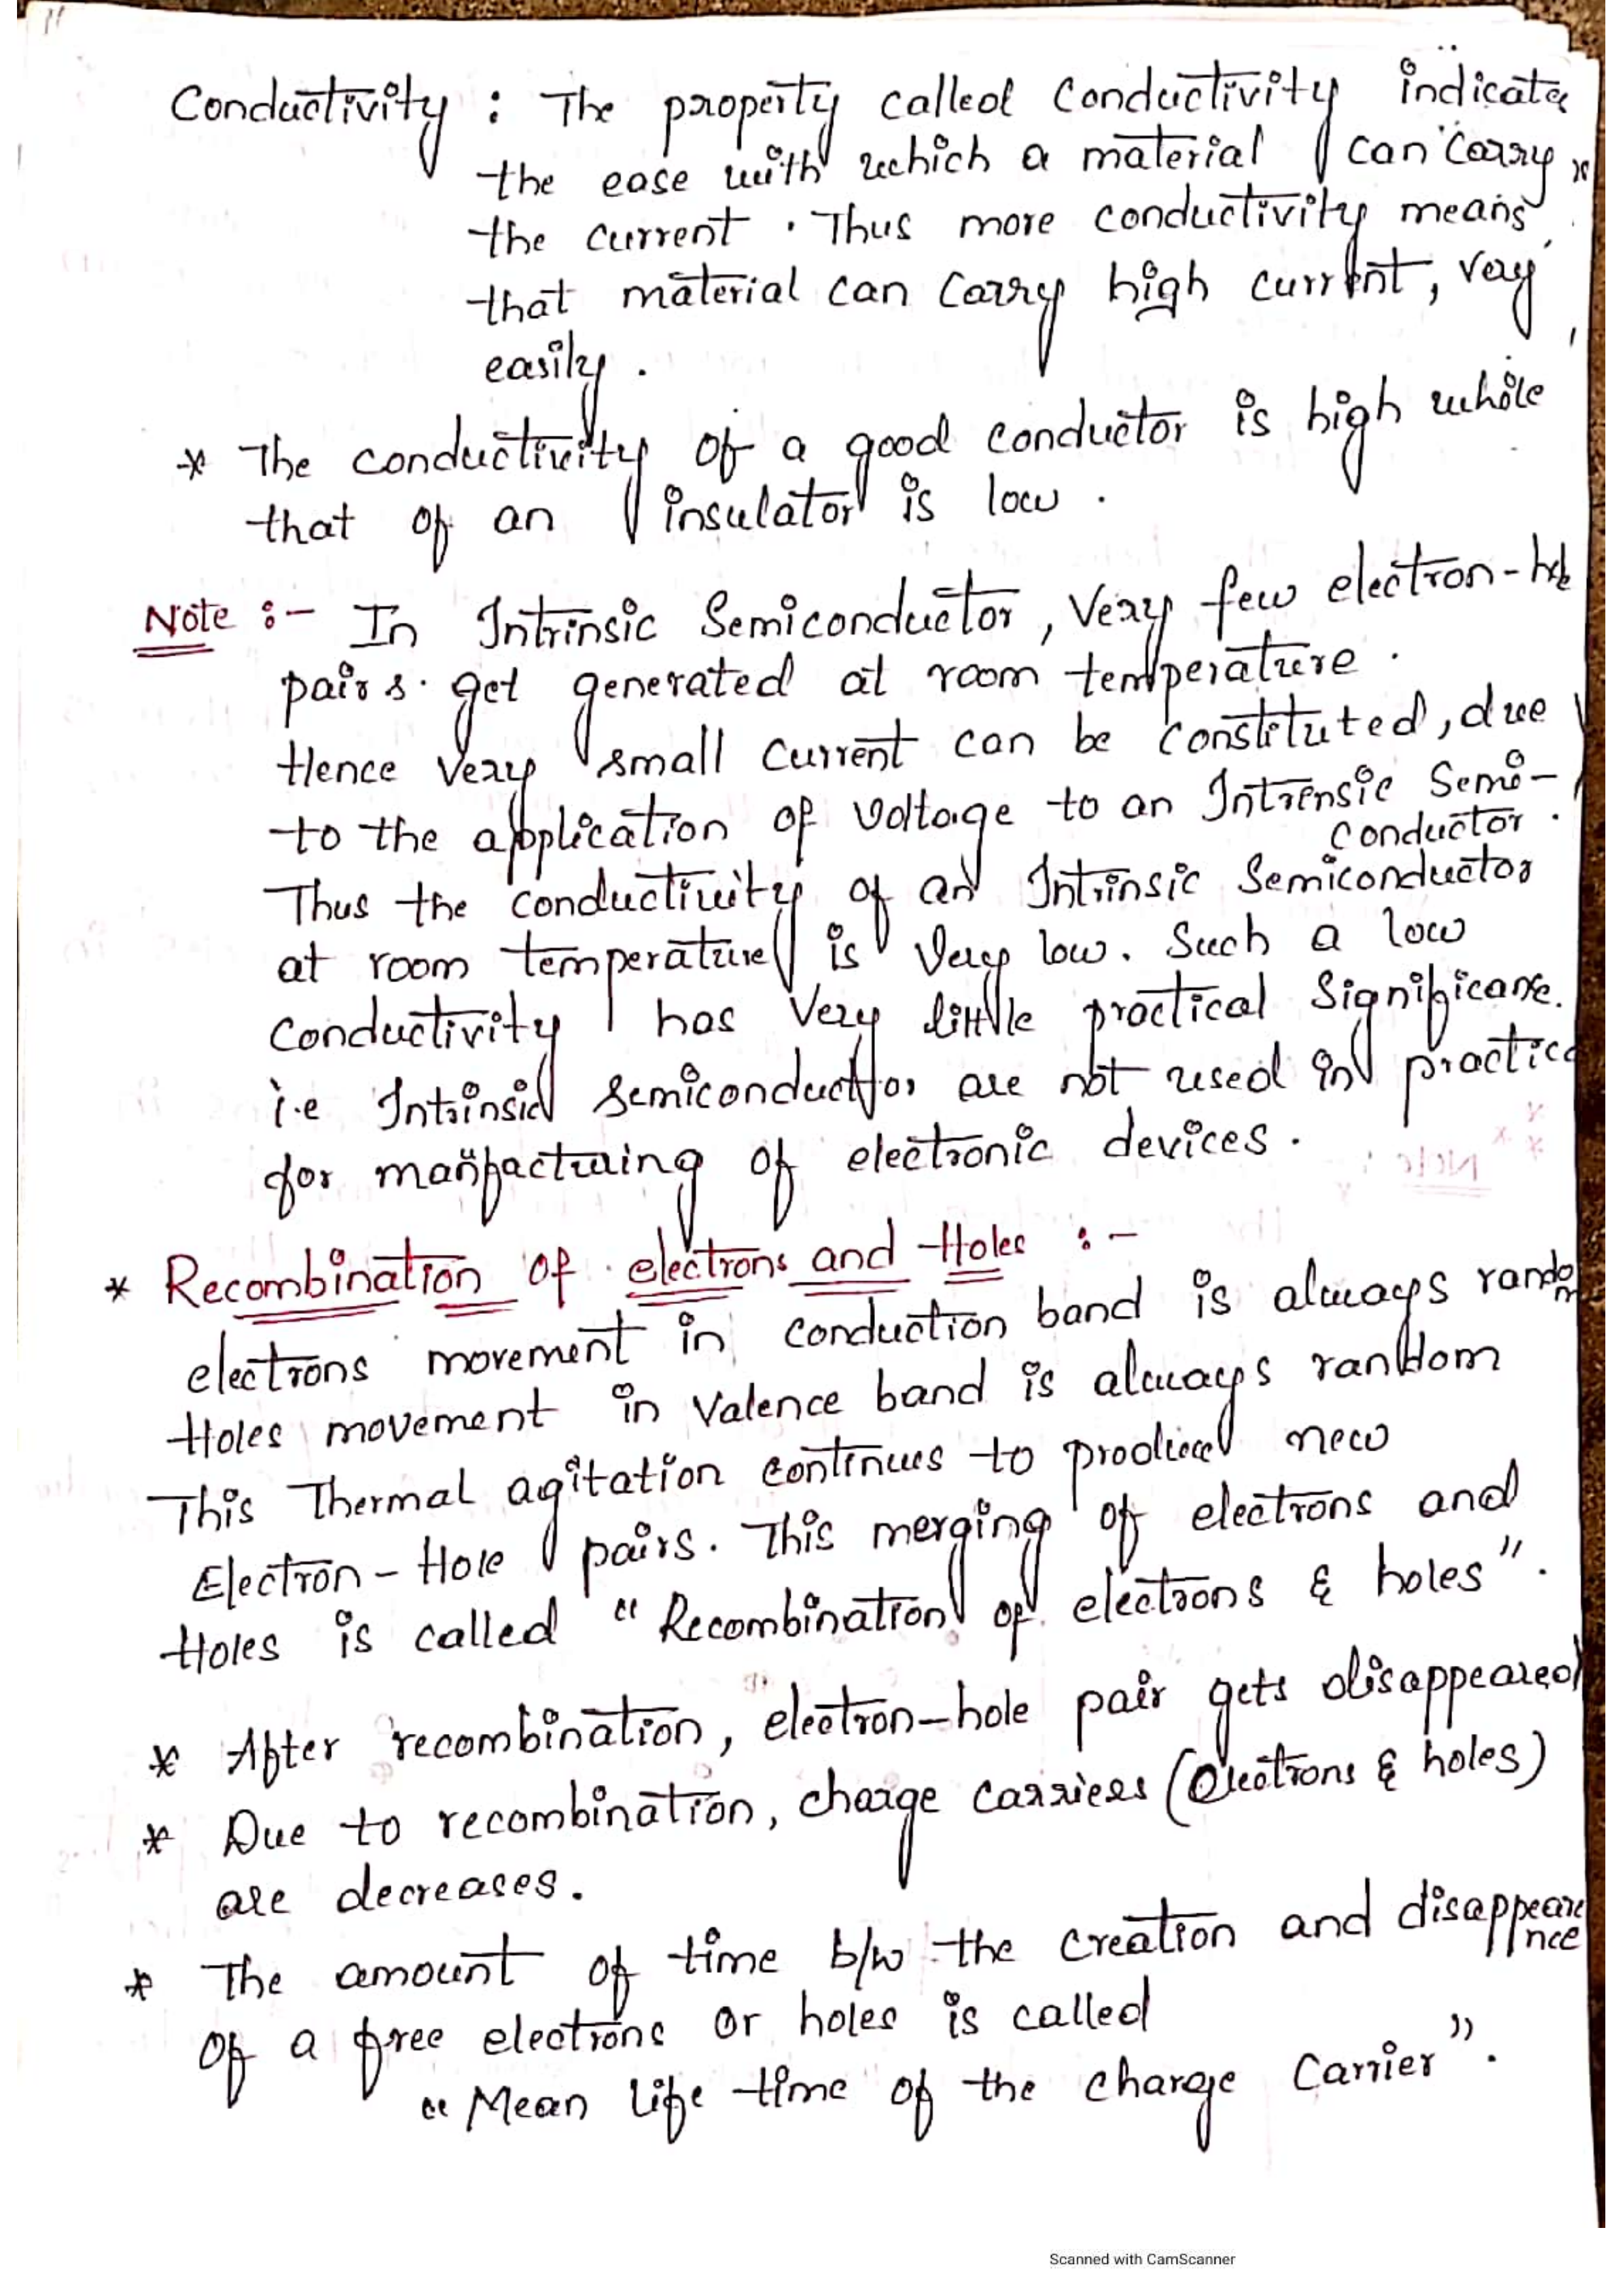 Conductivity : The property called Conductivity indicates
the ease with which a material can carry
the current . Thus more conductivity means
that material can carry high current, very
easily .
* The conductivity of a good conductor is high while
that of an insulator is low .
Note :- In Intrinsic Semiconductor, Very few electron-hole
pairs get generated at room temperature .
Hence very small current can be constituted, due
to the application of voltage to an Intrinsic Semi-
conductor .
Thus the conductivity of an Intrinsic Semiconductor
at room temperature is very low. Such a low
Conductivity has Very little practical Significance.
i.e Intrinsic semiconductor are not used in practice
for manufacturing of electronic devices .
* Recombination of electrons and Holes :-
electrons movement in conduction band is always random
Holes movement in Valence band is always random
This Thermal agitation continues to produce new
Electron - Hole pairs. This merging of electrons and
Holes is called " Recombination of electrons & holes" .
* After recombination, electron-hole pair gets disappeared
* Due to recombination, charge carriers (electrons & holes)
are decreases .
* The amount of time b/w the creation and disappeare
nce
of a free electrons or holes is called
" Mean life time of the charge Carrier" .
Scanned with CamScanner